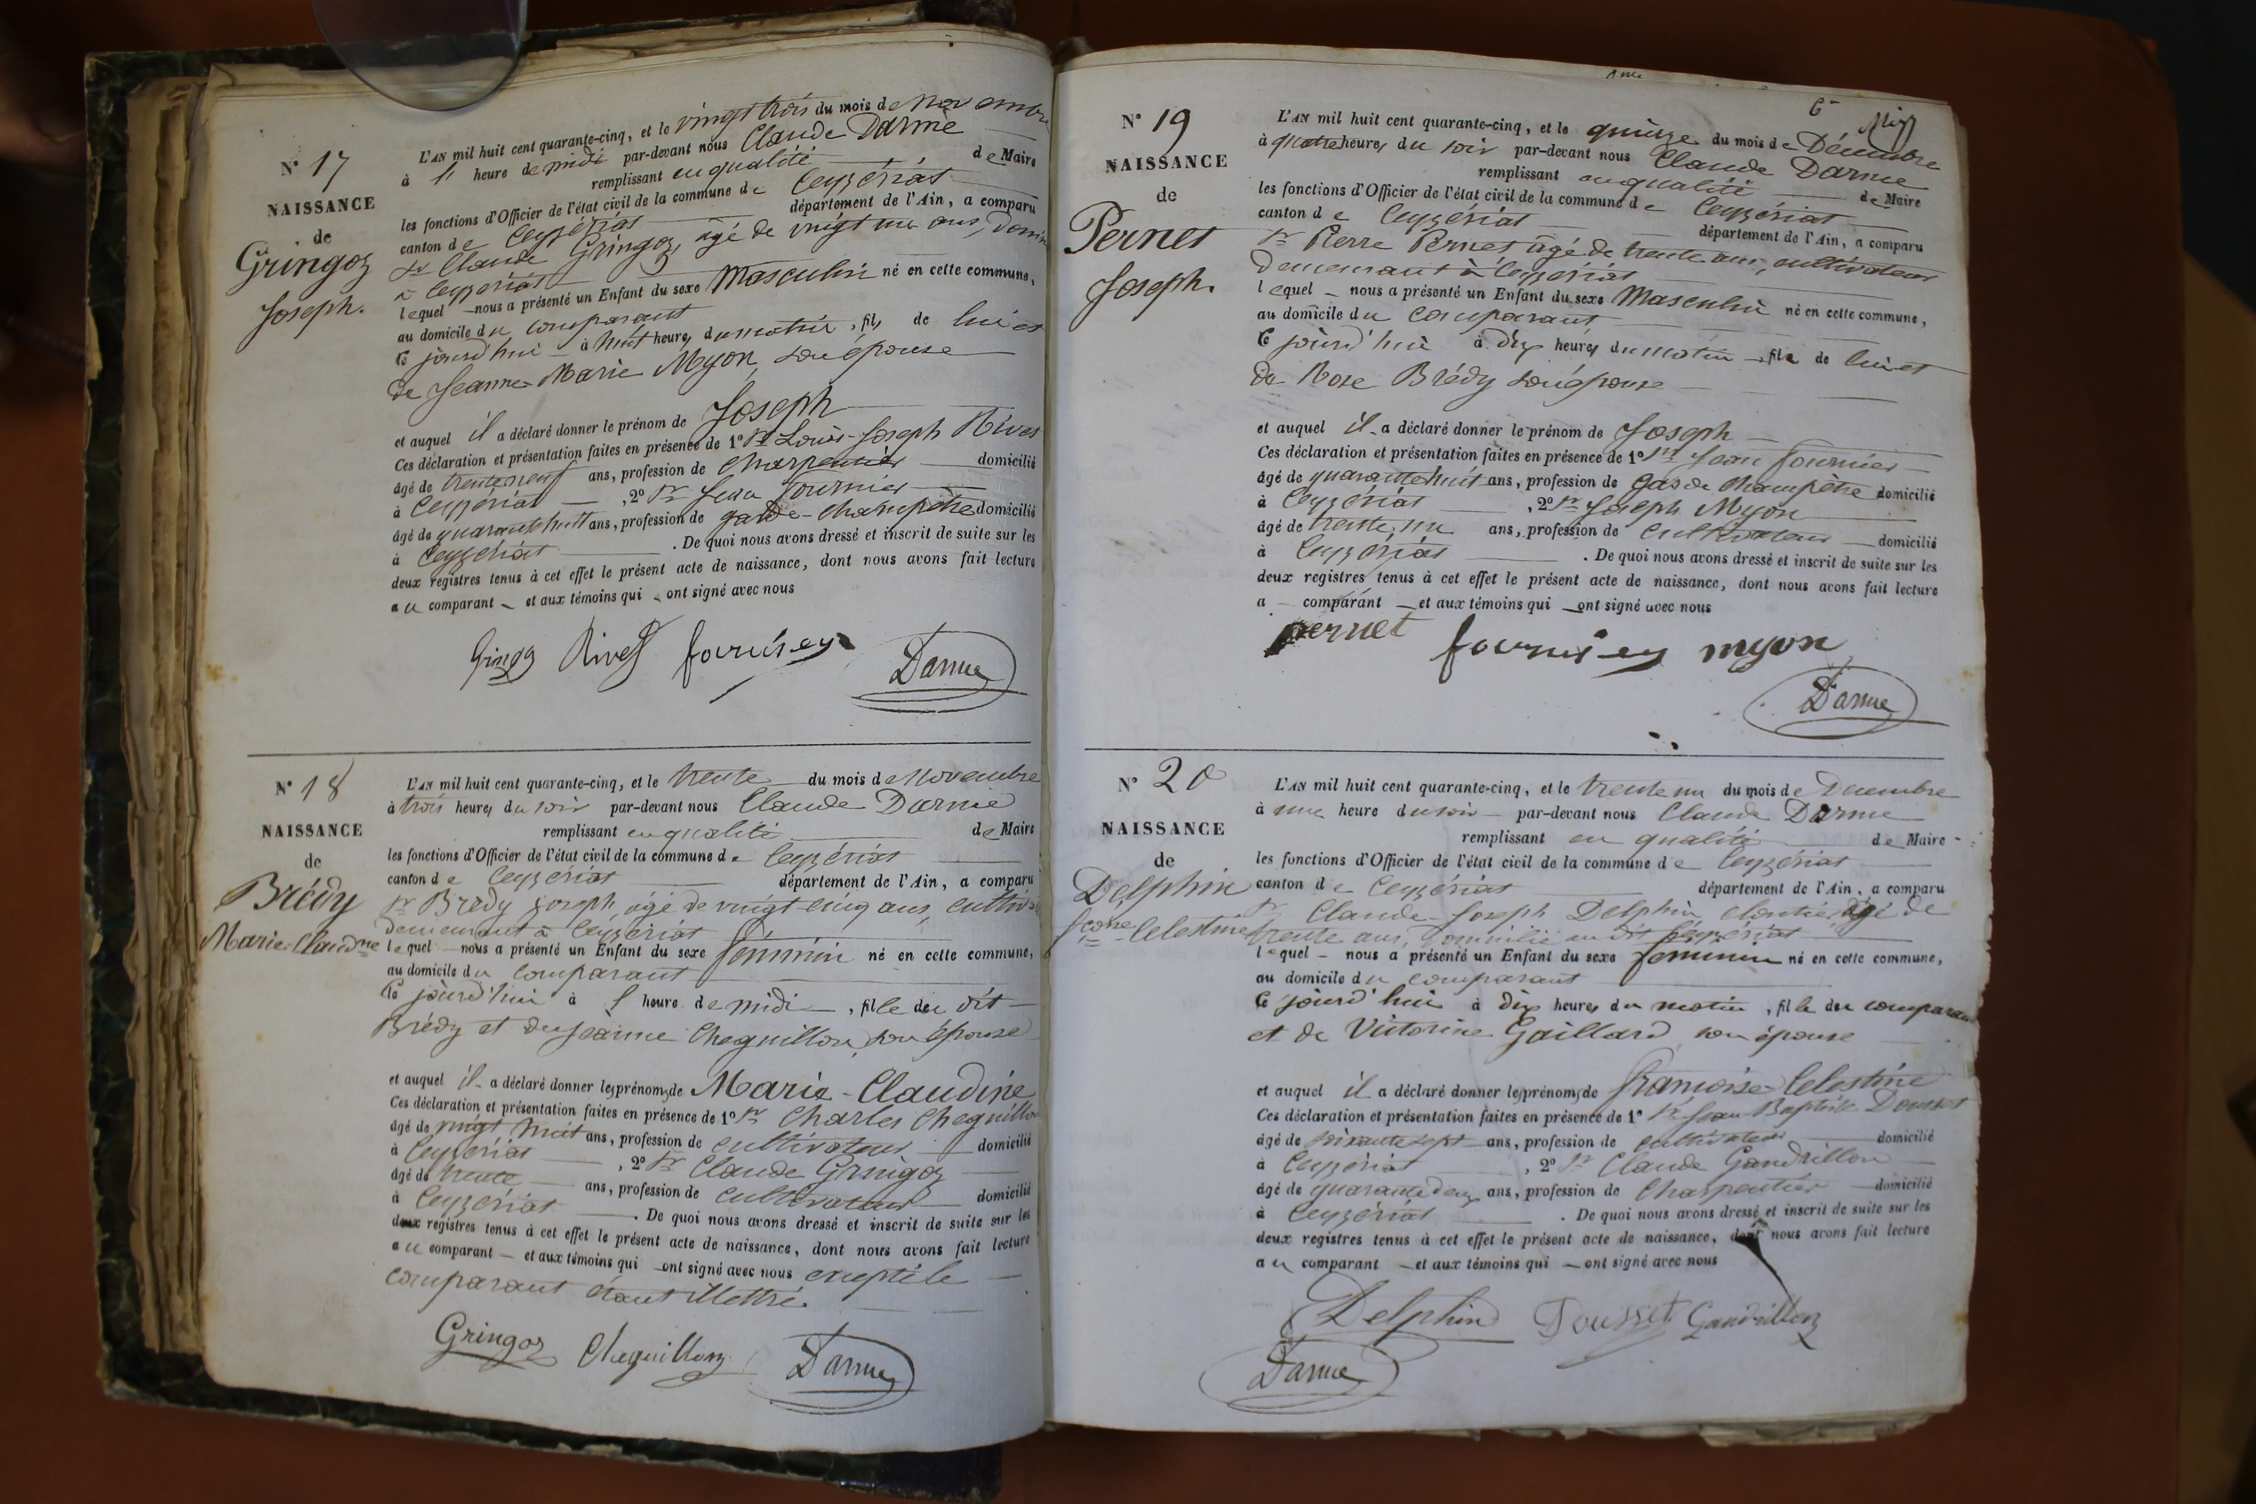 N° 17
NAISSANCE
de
Gringoz
Joseph.
L'AN mil huit cent quarante-cinq, et le vingt trois du mois de Novembre
à l' heure de midi par-devant nous Claude Darme
remplissant en qualité de Maire
les fonctions d'Officier de l'état civil de la commune de Ceyzériat
canton de Ceyzériat département de l'Ain, a comparu
Sr Claude Gringoz, âgé de vingt un ans,
à Ceyzériat
lequel nous a présenté un Enfant du sexe Masculin né en cette commune,
au domicile du comparant
ce jourd'hui à huit heures du matin, fils de lui et
de Jeanne-Marie Myon, son épouse
et auquel il a déclaré donner le prénom de Joseph
Ces déclaration et présentation faites en présence de 1° Sr Louis-Joseph Rives
âgé de trente neuf ans, profession de Charpentier domicilié
à Ceyzériat, 2° Sr Jean Fournier
âgé de quarante huit ans, profession de garde-champêtre domicilié
à Ceyzériat. De quoi nous avons dressé et inscrit de suite sur les
deux registres tenus à cet effet le présent acte de naissance, dont nous avons fait lecture
au comparant et aux témoins qui ont signé avec nous
Gringoz Rives fournier
Darme
N° 18
NAISSANCE
de
Brédy
Marie-Claudne
L'AN mil huit cent quarante-cinq, et le trente du mois de Novembre
à trois heures du soir par-devant nous Claude Darme
remplissant en qualité de Maire
les fonctions d'Officier de l'état civil de la commune de Ceyzériat
canton de Ceyzériat département de l'Ain, a comparu
Sr Brédy Joseph, âgé de vingt cinq ans,
demeurant à Ceyzériat
lequel nous a présenté un Enfant du sexe féminin né en cette commune,
au domicile du comparant
ce jourd'hui à l' heure de midi, fille du dit
Brédy et de Jeanne Cheguillon, son épouse
et auquel il a déclaré donner les prénoms de Marie-Claudine
Ces déclaration et présentation faites en présence de 1° Sr Charles Cheguillon
âgé de vingt huit ans, profession de cultivateur domicilié
à Ceyzériat, 2° Sr Claude Gringoz
âgé de trente ans, profession de cultivateur domicilié
à Ceyzériat. De quoi nous avons dressé et inscrit de suite sur les
deux registres tenus à cet effet le présent acte de naissance, dont nous avons fait lecture
au comparant et aux témoins qui ont signé avec nous excepté le
comparant étant illettré.
Gringoz Cheguillon Darme
N° 19
NAISSANCE
de
Pernet
Joseph.
L'AN mil huit cent quarante-cinq, et le quinze du mois de Décembre
à quatre heures du soir par-devant nous Claude Darme
remplissant en qualité de Maire
les fonctions d'Officier de l'état civil de la commune de Ceyzériat
canton de Ceyzériat département de l'Ain, a comparu
Sr Pierre Pernet âgé de trente ans, cultivateur
demeurant à Ceyzériat
lequel nous a présenté un Enfant du sexe Masculin né en cette commune,
au domicile du comparant
ce jourd'hui à dix heures du matin fils de lui et
de Rose Brédy son épouse
et auquel il a déclaré donner le prénom de Joseph
Ces déclaration et présentation faites en présence de 1° Sr Jean Fournier
âgé de quarante huit ans, profession de garde champêtre domicilié
à Ceyzériat, 2° Sr Joseph Myon
âgé de trente un ans, profession de cultivateur domicilié
à Ceyzériat. De quoi nous avons dressé et inscrit de suite sur les
deux registres tenus à cet effet le présent acte de naissance, dont nous avons fait lecture
a comparant et aux témoins qui ont signé avec nous
pernet fournier myon
Darme
N° 20
NAISSANCE
de
Delphin
Célestine
L'AN mil huit cent quarante-cinq, et le trente un du mois de Décembre
à une heure du soir par-devant nous Claude Darme
remplissant en qualité de Maire
les fonctions d'Officier de l'état civil de la commune de Ceyzériat
canton de Ceyzériat département de l'Ain, a comparu
Sr Claude-Joseph Delphin, cloutier, âgé de
trente ans, domicilié au dit Ceyzériat
lequel nous a présenté un Enfant du sexe féminin né en cette commune,
au domicile du comparant
ce jourd'hui à dix heures du matin, fille du comparant
et de Victorine Gaillard son épouse
et auquel il a déclaré donner les prénoms de françoise-Célestine
Ces déclaration et présentation faites en présence de 1° Sr Jean Baptiste Dousset
âgé de soixante sept ans, profession de cultivateur domicilié
à Ceyzériat, 2° Sr Claude Gandrillon
âgé de quarante deux ans, profession de Charpentier domicilié
à Ceyzériat. De quoi nous avons dressé et inscrit de suite sur les
deux registres tenus à cet effet le présent acte de naissance, dont nous avons fait lecture
au comparant et aux témoins qui ont signé avec nous
Delphin Dousset Gandrillon
Darme